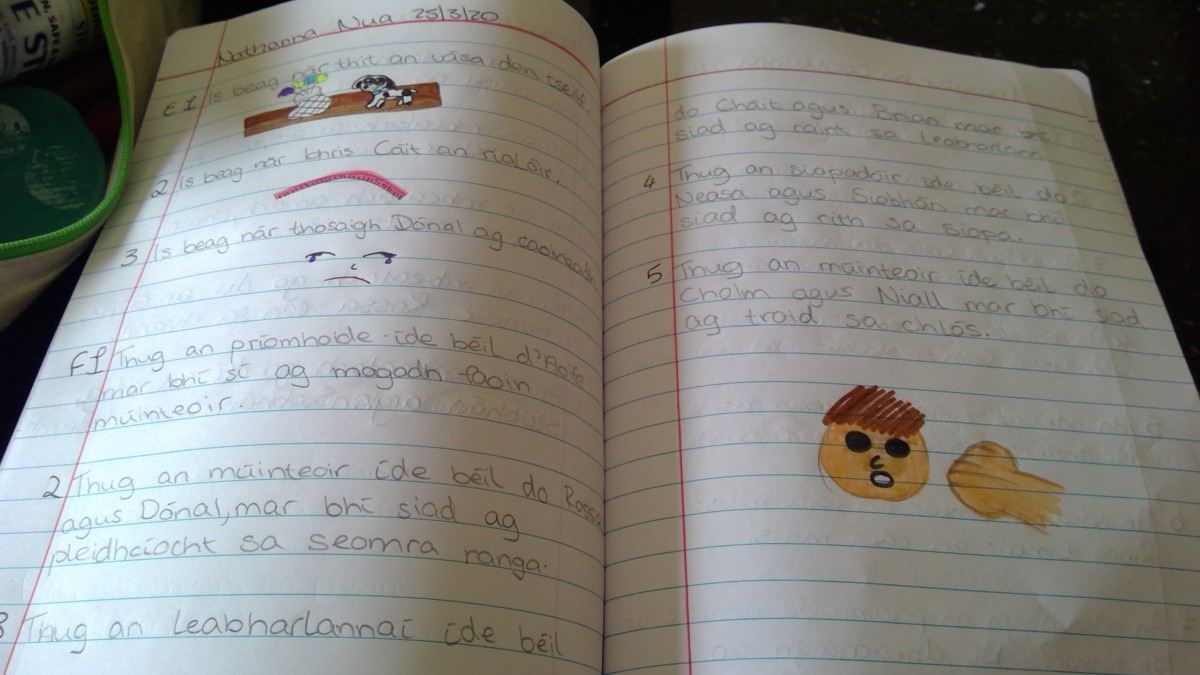 Nathanna Nua 25/3/20
E1 Is beag nár thit an vása den tseilf
2 Is beag nár bhris Cáit an rialóir.
3 Is beag nár thosaigh Dónal ag caoineadh
F1 Thug an príomhoide íde béil d'Aoife
mar bhí sí ag magadh faoin
múinteoir.
2 Thug an múinteoir íde béil do Rossa
agus Dónal, mar bhí siad ag
pleidhcíocht sa seomra ranga.
3 Thug an leabharlannaí íde béil
do Cháit agus Brian mar
siad ag caint sa leabharlann
4 Thug an siopadóir íde béil do
Neasa agus Siobhán mar bhí
siad ag rith sa siopa.
5 Thug an múinteoir íde béil do
Cholm agus Niall mar bhí siad
ag troid sa chlós.